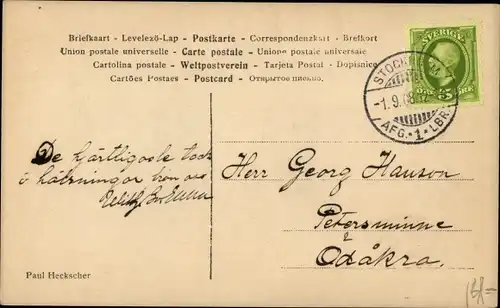 Briefkaart - Levelező-Lap - Postkarte - Correspondenzkart - Brefkort
Union postale universelle - Carte postale - Unione postale universale
Cartolina postale - Weltpostverein - Tarjeta Postal - Dopisnice
Cartões Postaes - Postcard - Открытое письмо.
SVERIGE
5 ÖRE
STOCKHOLM
-1.9.08
AFG.·1·LBR.
De hjärtligaste tack
o hälsningar från oss
Herr Georg Hanson
Petersminne
Ödåkra.
Paul Heckscher